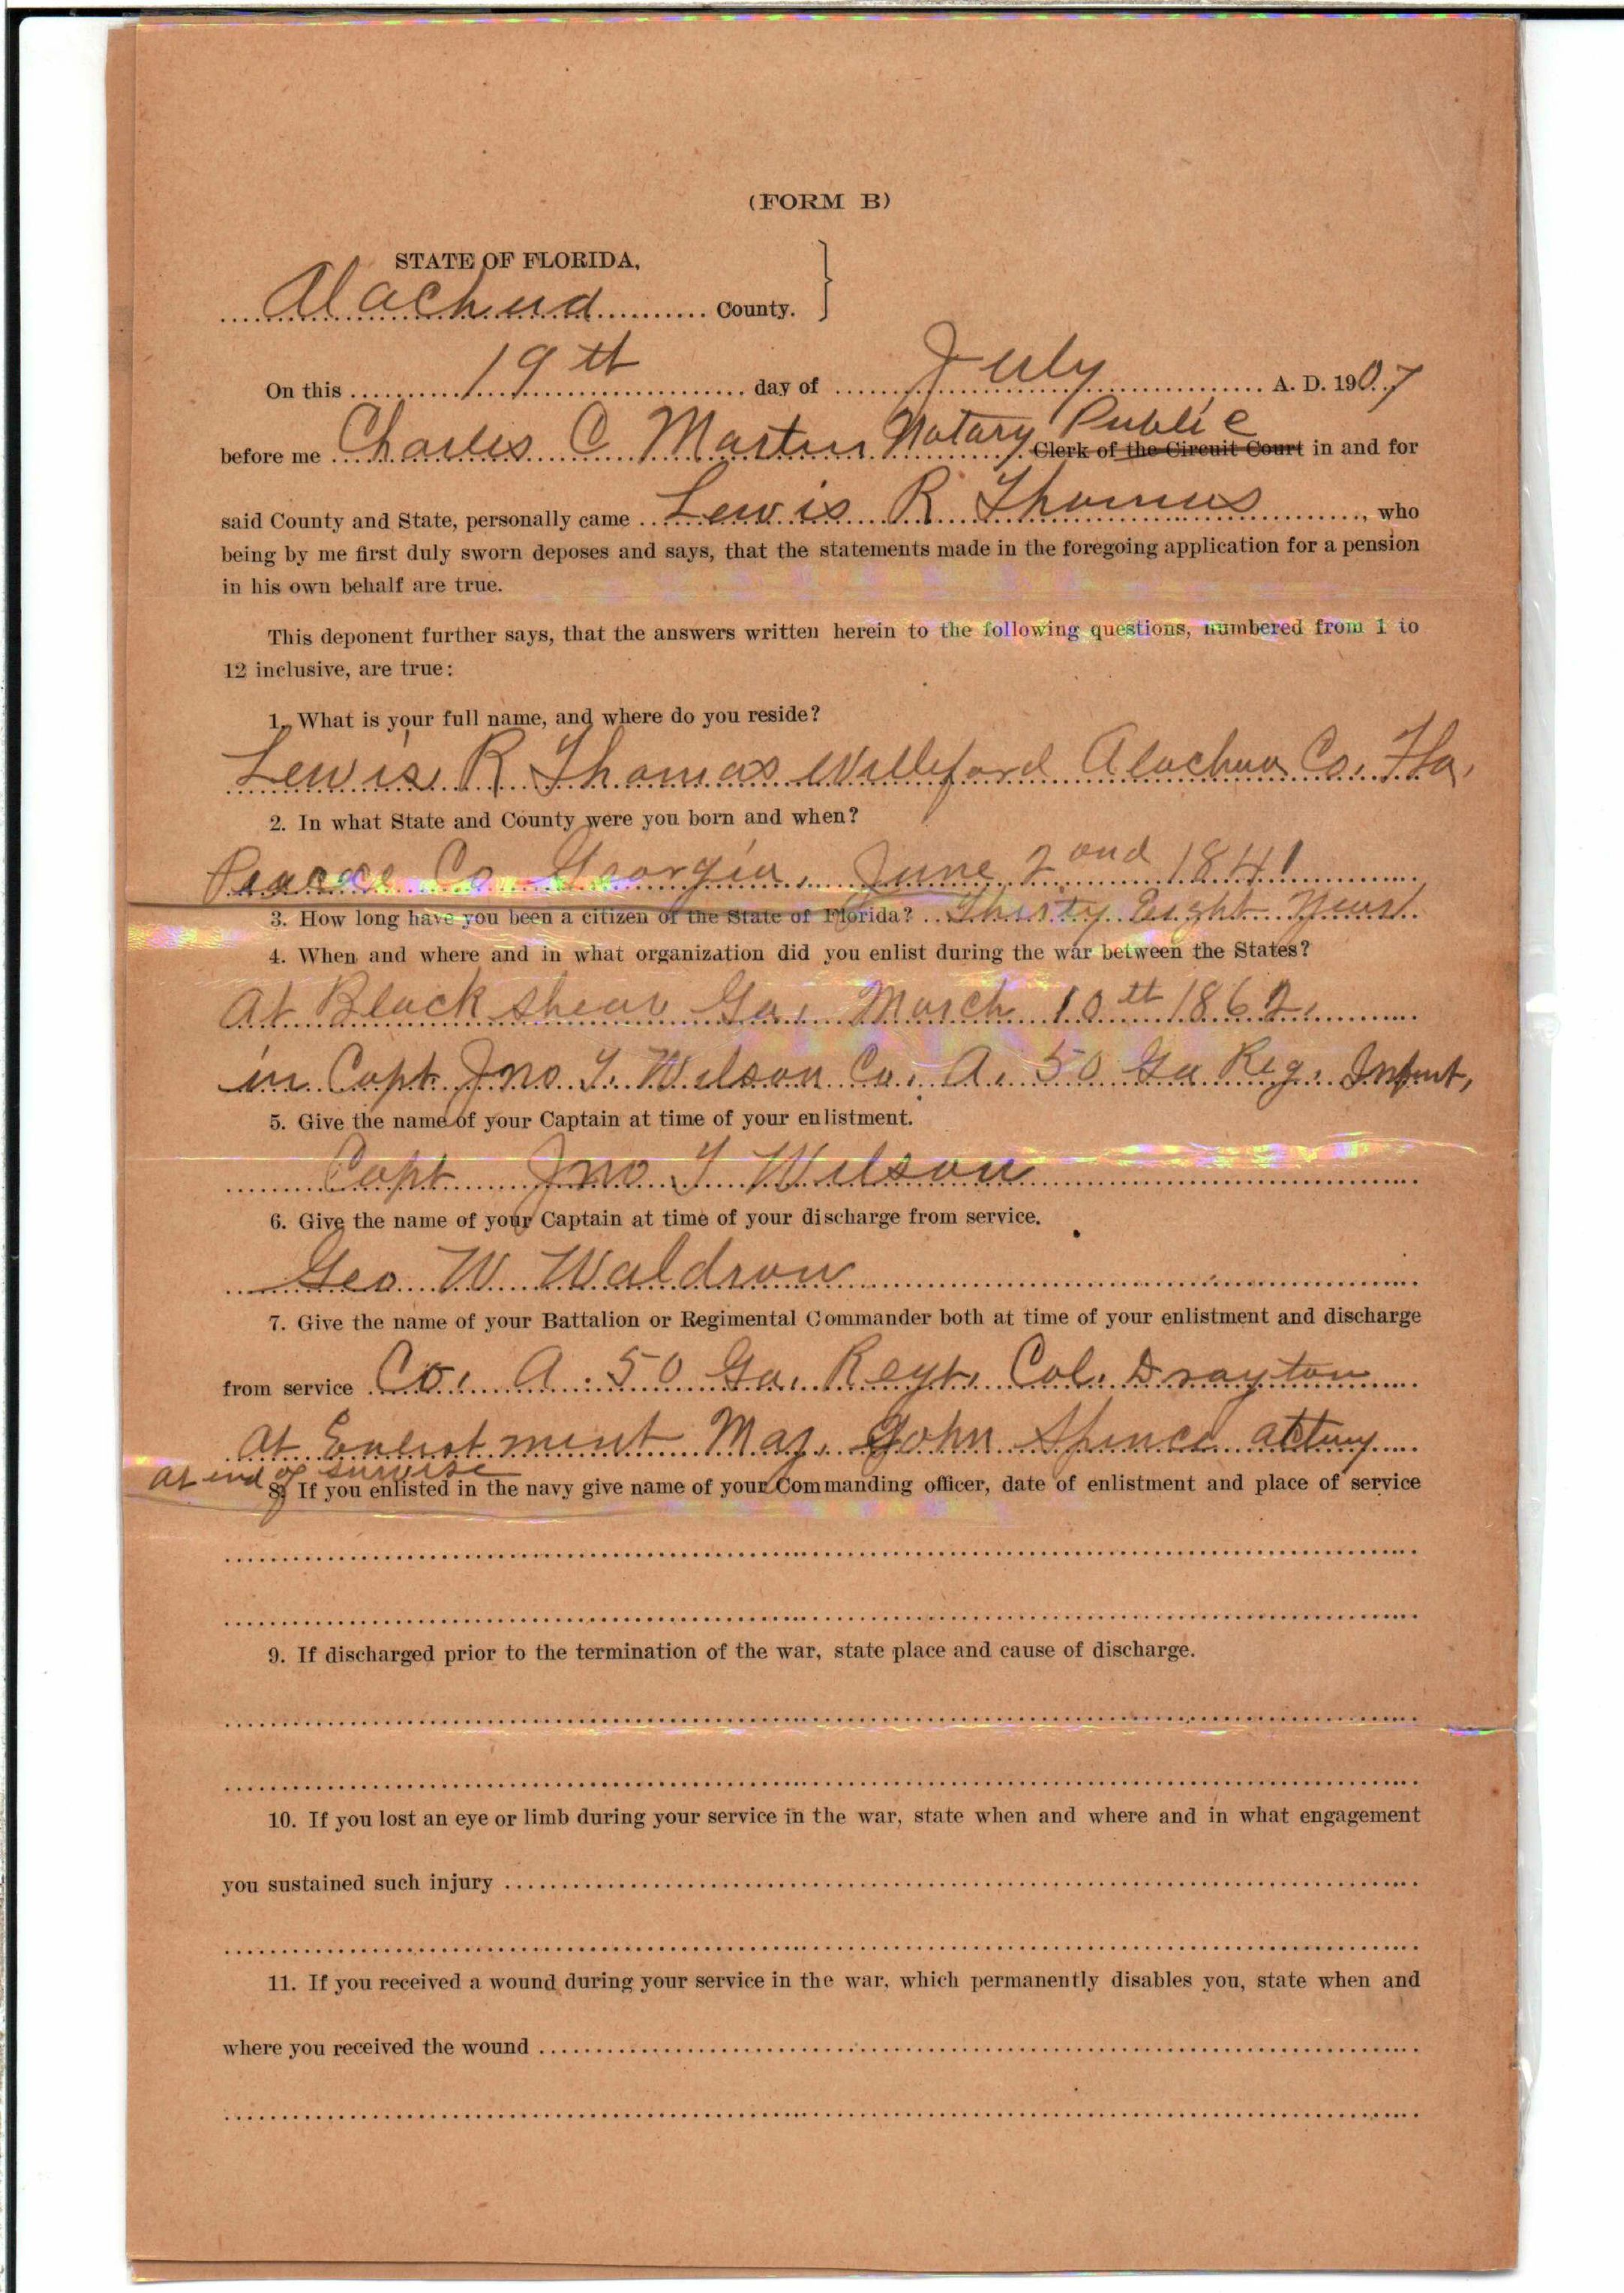 (FORM B)
STATE OF FLORIDA,
Alachua County.
On this 19th day of July A. D. 1907
before me Charles C. Martin Notary Public Clerk of the Circuit Court in and for
said County and State, personally came Lewis R. Thomas, who
being by me first duly sworn deposes and says, that the statements made in the foregoing application for a pension
in his own behalf are true.
This deponent further says, that the answers written herein to the following questions, numbered from 1 to
12 inclusive, are true:
1. What is your full name, and where do you reside?
Lewis R Thomas Willeford Alachua Co. Fla.
2. In what State and County were you born and when?
Co Georgia, June 2ond 1841
3. How long have you been a citizen of the State of Florida? Thirty Eight Years.
4. When and where and in what organization did you enlist during the war between the States?
At Black shear Ga. March 10th 1862.
in Capt Jno. T. Wilson Co. A. 50 Ga Reg. Infant,
5. Give the name of your Captain at time of your enlistment.
Capt Jno T Wilson
6. Give the name of your Captain at time of your discharge from service.
Geo. W. Waldron
7. Give the name of your Battalion or Regimental Commander both at time of your enlistment and discharge
from service Co. A. 50 Ga. Regt. Col. Drayton
At Enlistment Maj. John Spence
at end of survise
8. If you enlisted in the navy give name of your Commanding officer, date of enlistment and place of service
9. If discharged prior to the termination of the war, state place and cause of discharge.
10. If you lost an eye or limb during your service in the war, state when and where and in what engagement
you sustained such injury
11. If you received a wound during your service in the war, which permanently disables you, state when and
where you received the wound